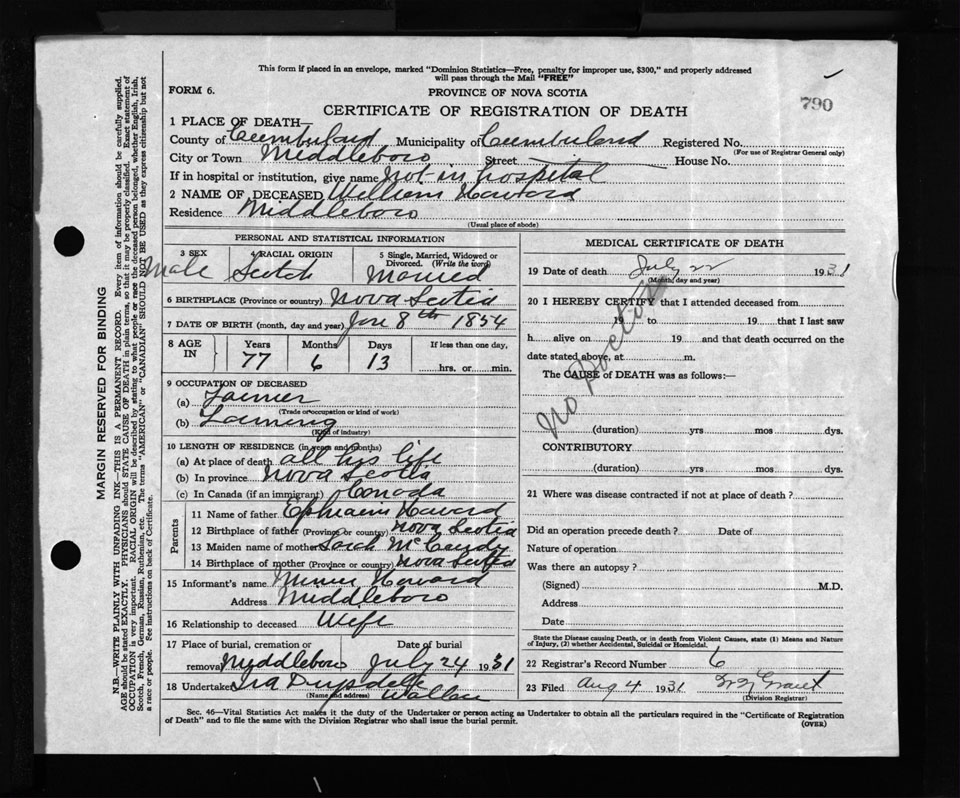 This form if placed in an envelope, marked "Dominion Statistics—Free, penalty for improper use, $300," and properly addressed
will pass through the Mail "FREE"
FORM 6.
PROVINCE OF NOVA SCOTIA
790
CERTIFICATE OF REGISTRATION OF DEATH
1 PLACE OF DEATH—
County of Cumberland Municipality of Cumberland Registered No.
(For use of Registrar General only)
City or Town Middleboro Street House No.
If in hospital or institution, give name Not in hospital
2 NAME OF DECEASED William Havard
Residence Middleboro
(Usual place of abode)
PERSONAL AND STATISTICAL INFORMATION
3 SEX 4 RACIAL ORIGIN 5 Single, Married, Widowed or Divorced. (Write the word)
Male Scotch Married
6 BIRTHPLACE (Province or country) Nova Scotia
7 DATE OF BIRTH (month, day and year) Jan 8th 1854
8 AGE IN Years Months Days If less than one day,
77 6 13 hrs. or min.
9 OCCUPATION OF DECEASED
(a) Farmer
(Trade or occupation or kind of work)
(b) Farming
(Kind of industry)
10 LENGTH OF RESIDENCE (in years and months)
(a) At place of death all his life
(b) In province Nova Scotia
(c) In Canada (if an immigrant) Canada
Parents
11 Name of father Ephraim Havard
12 Birthplace of father (Province or country) Nova Scotia
13 Maiden name of mother Sarah
14 Birthplace of mother (Province or country) Nova Scotia
15 Informant's name Havard
Address Middleboro
16 Relationship to deceased Wife
17 Place of burial, cremation or Date of burial
removal Middleboro July 24 1931
18 Undertaker Ira
(Name and address) Wallace
MEDICAL CERTIFICATE OF DEATH
19 Date of death July 22 1931
(Month, day and year)
20 I HEREBY CERTIFY that I attended deceased from
19 to 19 that I last saw
h alive on 19 and that death occurred on the
date stated above, at m.
The CAUSE of DEATH was as follows:—
No Doctor
(duration) yrs mos dys.
CONTRIBUTORY
(duration) yrs mos dys.
21 Where was disease contracted if not at place of death?
Did an operation precede death? Date of
Nature of operation
Was there an autopsy?
(Signed) M.D.
Address
Date
State the Disease causing Death, or in death from Violent Causes, state (1) Means and Nature
of Injury, (2) whether Accidental, Suicidal or Homicidal.
22 Registrar's Record Number 6
23 Filed Aug 4 1931 Grant
(Division Registrar)
Sec. 46—Vital Statistics Act makes it the duty of the Undertaker or person acting as Undertaker to obtain all the particulars required in the "Certificate of Registration
of Death" and to file the same with the Division Registrar who shall issue the burial permit.
(OVER)
MARGIN RESERVED FOR BINDING
N.B.—WRITE PLAINLY WITH UNFADING INK—THIS IS A PERMANENT RECORD. Every item of information should be carefully supplied.
AGE should be stated EXACTLY. PHYSICIANS should STATE CAUSE OF DEATH in plain terms, so that it may be properly classified. Exact statement of
OCCUPATION is very important. RACIAL ORIGIN will be described by stating to what people or race the deceased person belonged, whether English, Irish,
Scotch, French, German, Russian, Ruthenian, etc. The terms "AMERICAN" or "CANADIAN" SHOULD NOT BE USED as they express citizenship but not
a race or people. See instructions on back of Certificate.